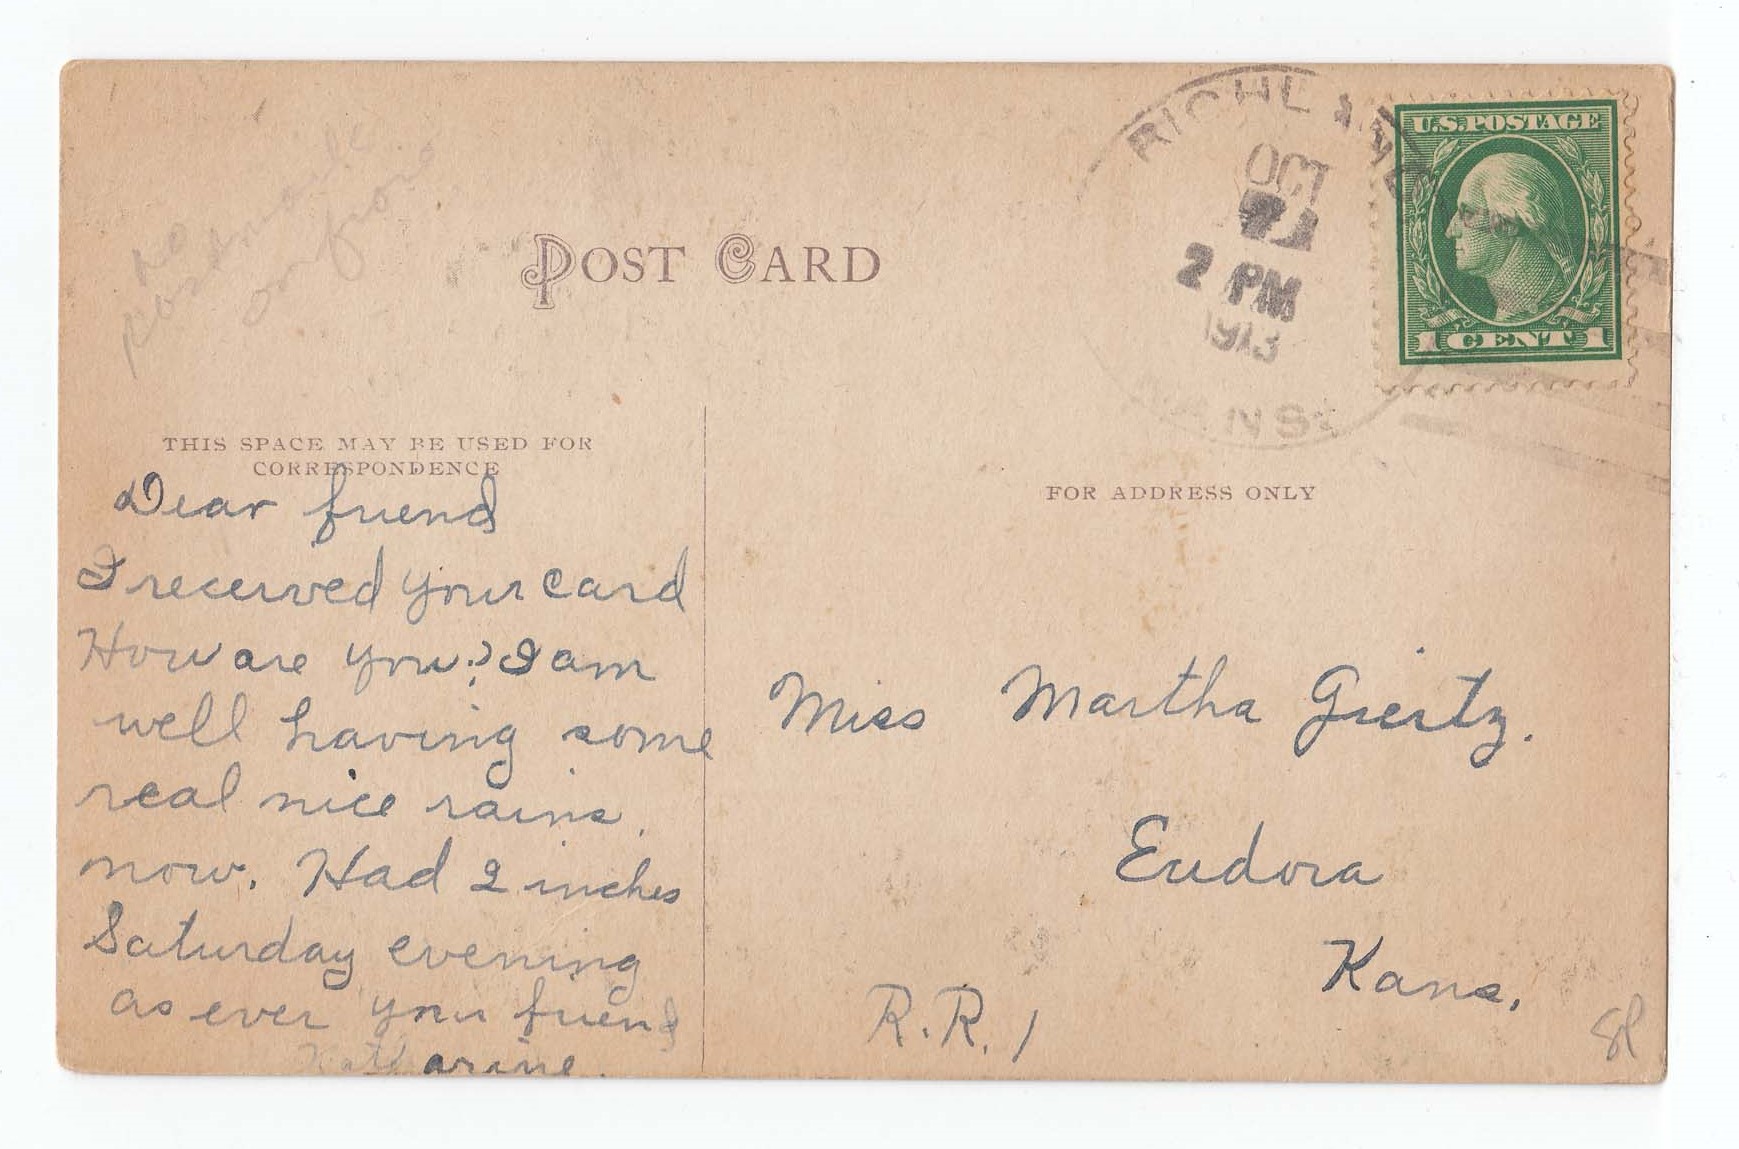 no
postmark
on front
POST CARD
OCT
2 PM
1913
KANS
U.S. POSTAGE
1 CENT 1
THIS SPACE MAY BE USED FOR
CORRESPONDENCE
FOR ADDRESS ONLY
Dear friend
I received your card
How are you? I am
well having some
real nice rains
now. Had 2 inches
Saturday evening
as ever your friend
Katharine.
Miss Martha Giertz.
Eudora
Kans.
R.R. 1